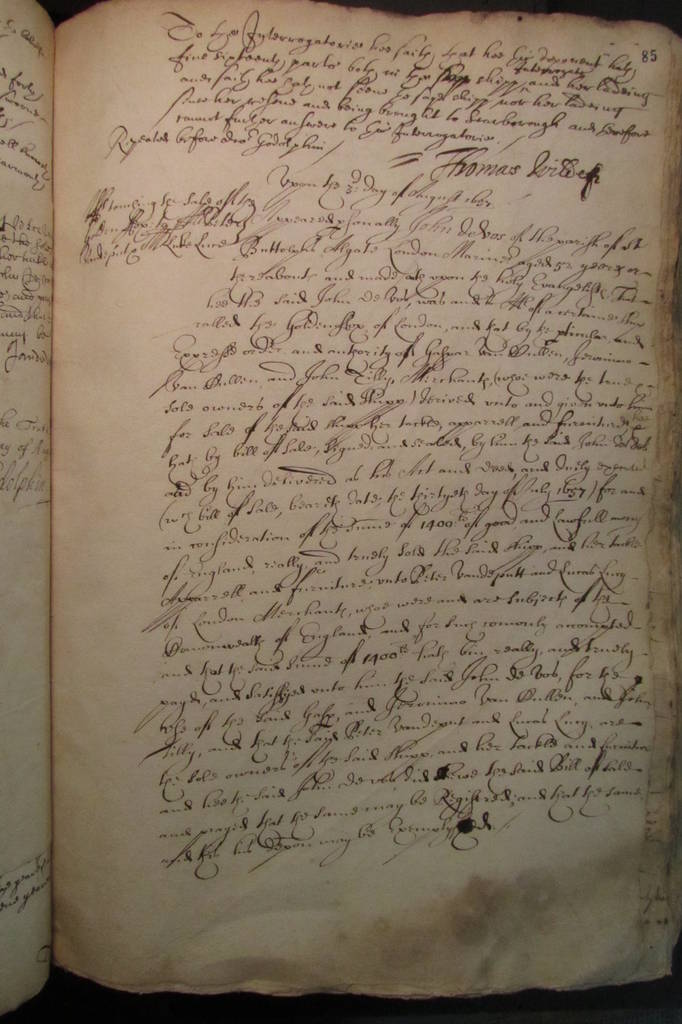 85
To the Interrogatories hee saith that hee this deponent hath
five sixteenth parts both in the shipp Interrogate and her ladeing
and saith hee hath not seene the said shipp nor her ladeing
since her seizure and being brought to Scarborough and therefore
cannot further answere to this Interrogatorie.
Repeated before doctor Godolphin
Thomas Wilder
Upon the 3d day of August 1657.
touching the sale of the
Golden Fox to Peter
Vandeput & Luke Lucie
Appeared personally John de Vos of the parish of St
Buttolphs Algate London Mariner aged 52 yeares or
thereabouts and made oath upon the holy Evangelists That
hee the said John de Vos, was and is Mr of a certaine shipp
called the Golden Fox, of London, and that by the perticular, and
Expresse order and authority of Gaspar Van Bullen, Jeronimo
Van Bullen, and John Tilly, Merchants, (whoe were the true
sole owners of the said Shipp) derived unto and given unto him
for sale of the said Shipp her tackle, apparrell, and furniture, hee
hath by bill of sale, signed, and sealed, by him the said John de Vos
and by him delivered as his Act and deed, and duely executed
(wch bill of sale, beareth date, the thirtyeth day of July, 1657) for and
in consideration of the summe of 1400 li of good, and lawfull mony
of England, really, and truely sold the said Shipp, and her tackle
Apparrell, and furniture, unto Peter Vandeputt and Lucas Lucy
of London Merchants, whoe were and are subjects of the
Comonwealth of England, and for such comonly accompted
and that the said summe of 1400 li hath bin, really, and truely
payd, and sattisfyed unto him the said John de Vos, for the
use of the said Gaspar, and Jeronimo Van Bullen, and John
Tilly, and that the said Peter Vandeput and Lucas Lucy, are
the sole owners of the said Shipp, and her tackle and furniture
and hee the said John de Vos, did shewe the said Bill of sale
and prayed that the same may be Registred; and that the same
and this his depon may be Exemplifyed.